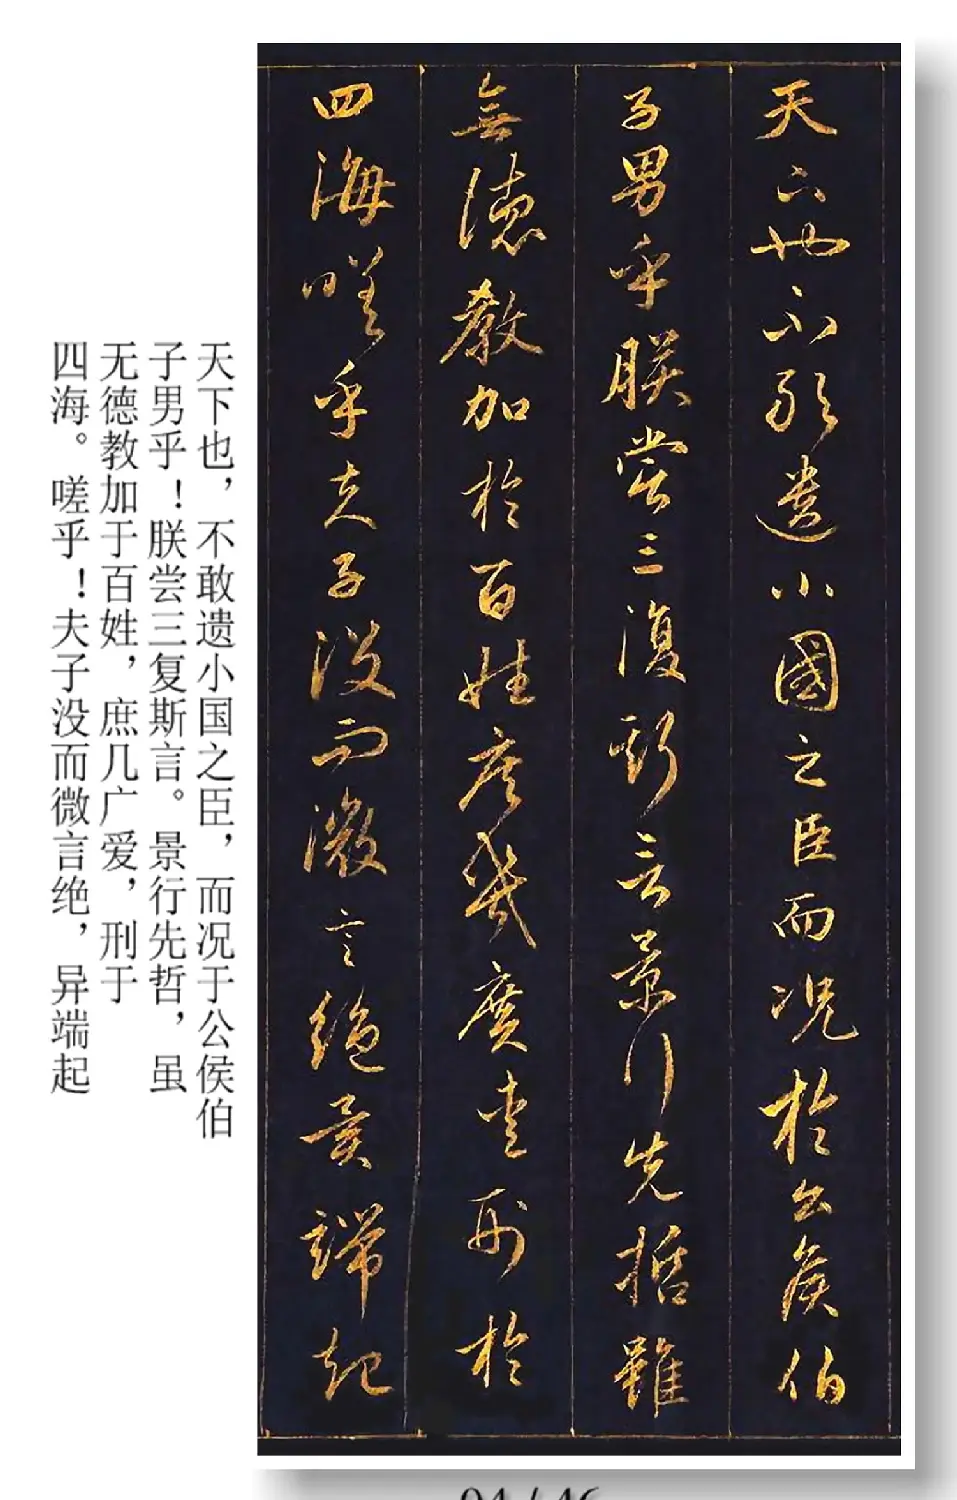 天下也不敢遺小國之臣而況於公侯伯
子男乎朕嘗三復斯言景行先哲雖
無德教加於百姓庶幾廣愛刑於
四海嗟乎夫子没而微言絕異端起
天下也，不敢遗小国之臣，而况于公侯伯
子男乎！朕尝三复斯言。景行先哲，虽
无德教加于百姓，庶几广爱，刑于
四海。嗟乎！夫子没而微言绝，异端起